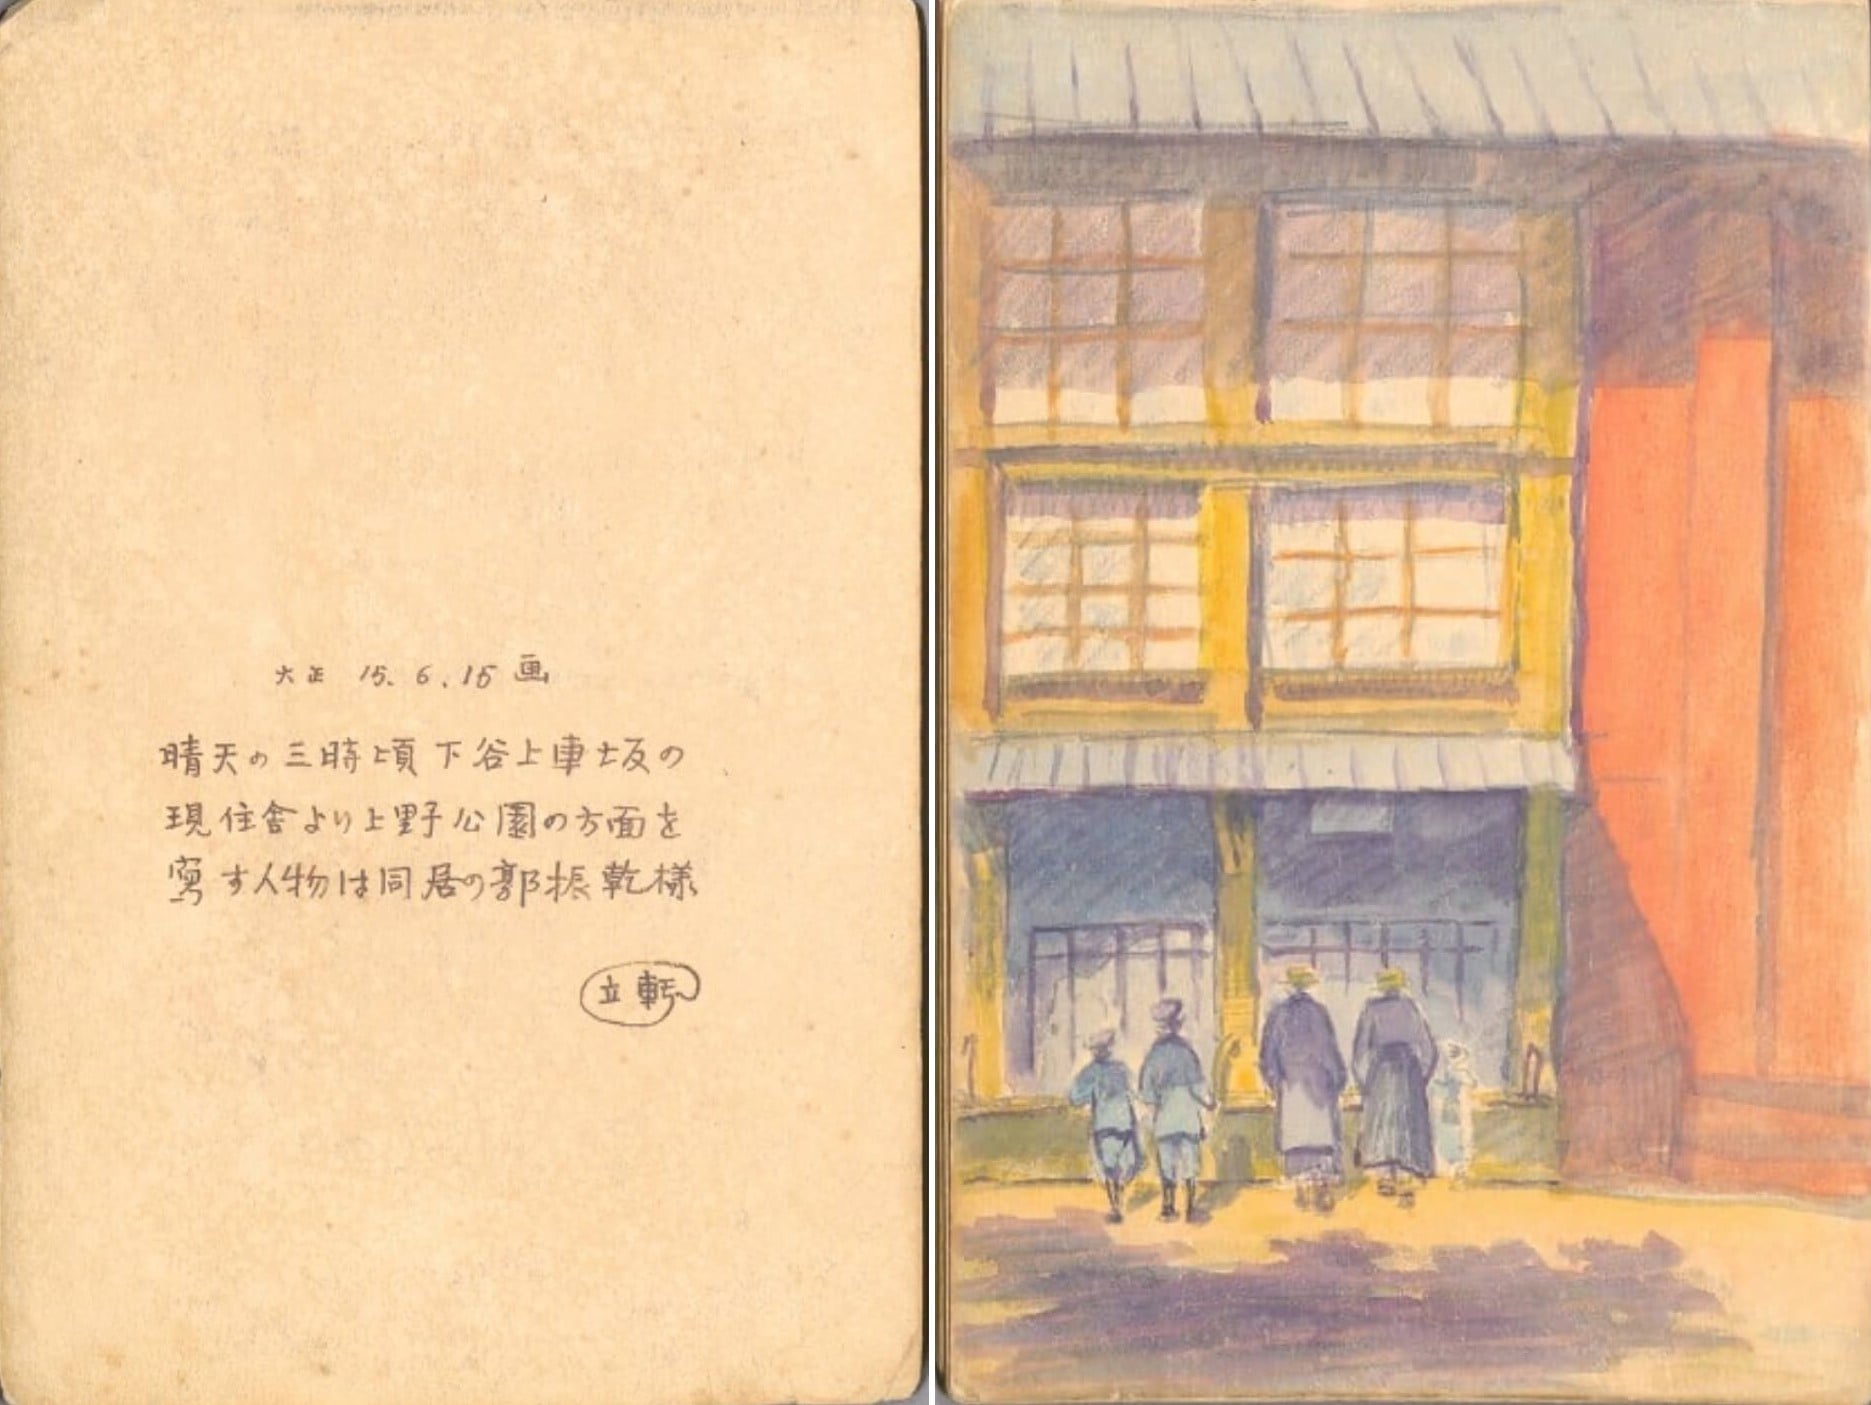 大正 15.6.15 画
晴天の三時頃下谷上車坂の
現住舎より上野公園の方面を
寫す人物は同居の郭振乾様
立軒